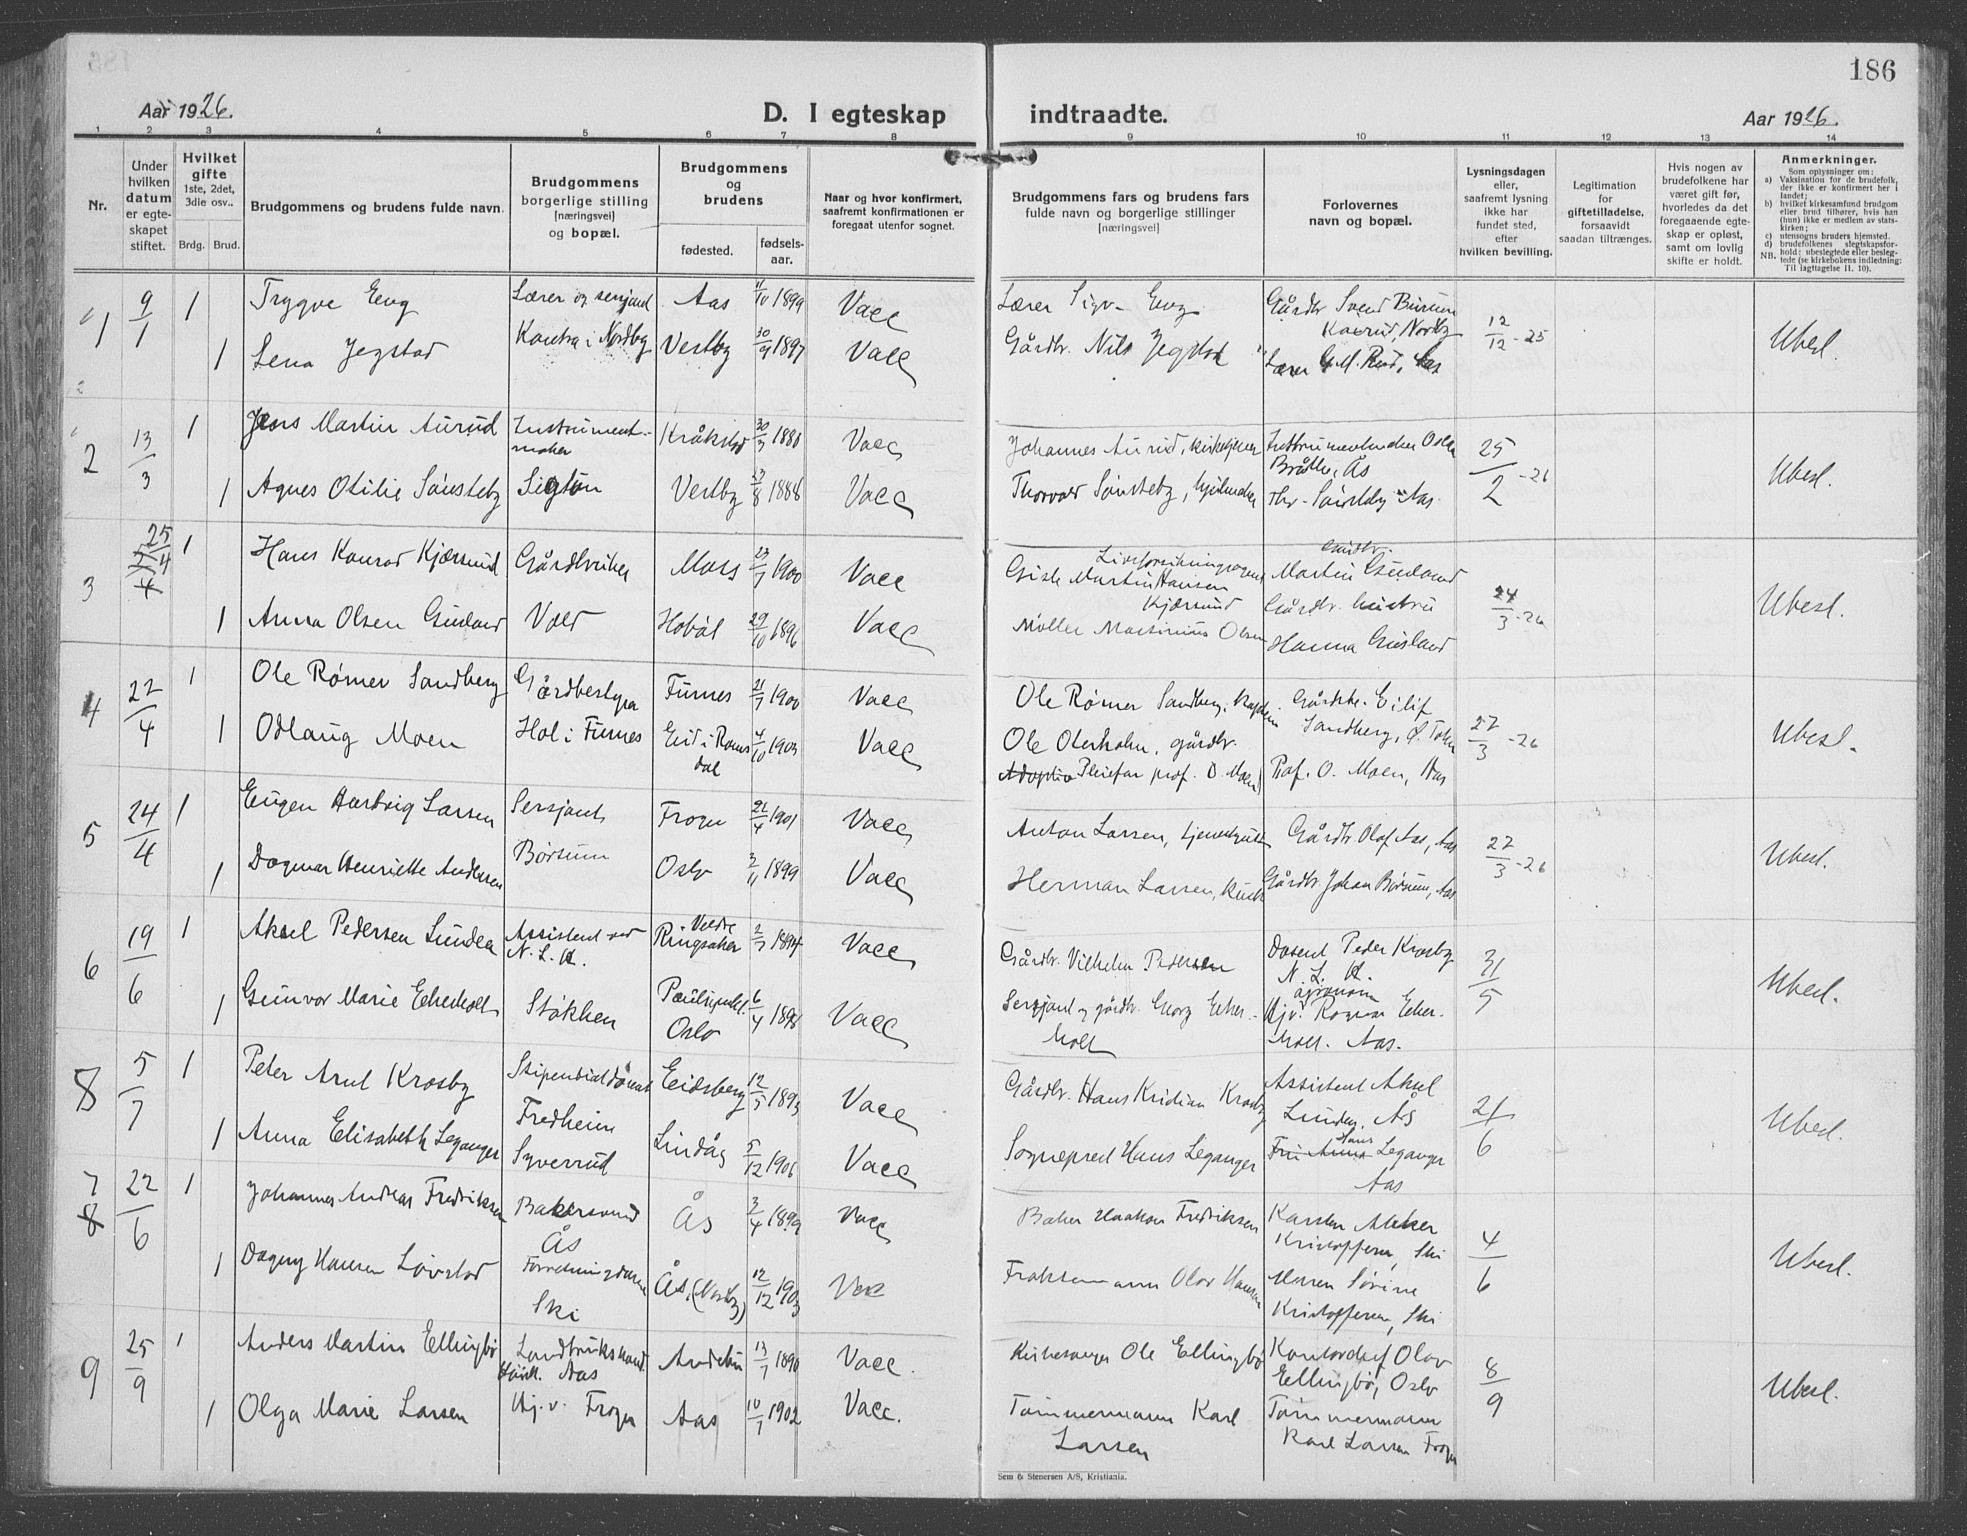 186
Aar 1926.
D. I egteskap indtraadte.
Aar 1926.
1 2 3 4 5 6 7 8 9 10 11 12 13 14
Nr.
Under hvilken datum er egteskapet stiftet.
Hvilket gifte 1ste, 2det, 3die osv..
Brdg. Brud.
Brudgommens og brudens fulde navn.
Brudgommens borgerlige stilling [næringsvei] og bopæl.
Brudgommens og brudens
fødested.
fødselsaar.
Naar og hvor konfirmert, saafremt konfirmationen er foregaat utenfor sognet.
Brudgommens fars og brudens fars fulde navn og borgerlige stillinger [næringsvei]
Forlovernes navn og bopæl.
Lysningsdagen eller, saafremt lysning ikke har fundet sted, efter hvilken bevilling.
Legitimation for giftetilladelse, forsaavidt saadan tiltrænges.
Hvis nogen av brudefolkene har været gift før, hvorledes da det foregaaende egteskap er opløst, samt om lovlig skifte er holdt.
Anmerkninger.
Som oplysninger om:
a) Vaksination for de brudefolk, der ikke er konfirmert her i landet;
b) hvilket kirkesamfund brudgom eller brud tilhører, hvis han (hun) ikke er medlem av statskirken;
c) utensogns bruders hjemsted.
d) brudefolkenes slegtskapsforhold: ubeslegtede eller beslegtede (se kirkebokens indledning:
NB. Til iagttagelse II. 10).
1 9/1 1 Trygve Eng Lærer og sersjant Aas 11/10 1899 Vacc Lærer Sigv. Eng Gårdbr Svend Búrum
Kaxrud, Nordby 12/12-25 Ubesl.
1 Lena Jegstad Kontra i Nordby Vestby 30/9 1897 Vacc Gårdbr. Nils Jegstad Lærer G. M. Rud, Aas
2 13/3 1 Jens Martin Aurud Instrumentmaker Kråkstad 1880 Vacc Johannes Aurud, kirketjener Instrumentmaker Oskar
Bråthe, Ås 25/2-26 Ubesl.
1 Agnes Otilie Sønsteby Sigtun Vestby 8 1888 Vacc Thorvald Sønsteby, hjulmaker Thv. Sønsteby Aas.
3 25/4 1 Hans Konrad Kjærsund Gårdbruker Moss 23/7 1900 Vacc Livsforsikringsagent
Gisle Martin Hansen
Kjærsund Gårdbr.
Martin Gusland 24/3-26 Ubesl.
1 Anna Olsen Gusland Vold Hobøl 29/10 1896 Vacc Møller Martinius Olsen Gårdbr. hustru
Hanna Gusland
4 22/4 1 Ole Rømer Sandberg Gårdbestyrer Furnes 21/7 1900 Vacc Ole Rømer Sandberg, kaptein Gårdbr. Eilif
Sandberg, Ø. Toten 27/3-26 Ubesl.
1 Odlaug Moen Hol i Furnes Eid i Romsdal 4/10 1903 Vacc Ole Oterholm, gårdbr.
Adoptiv Pleiefar prof. O. Moen) Prof. O. Moen, Aas
5 24/4 1 Eugen Hartvig Larsen Sersjant Frogn 22/4 1901 Vacc Anton Larsen, tjenestgutt Gårdbr Olaf Aas, Aas 27/3-26 Ubesl.
1 Dagmar Henriette Andersen Børsum Oslo 3/11 1899 Vacc Herman Larsen, kusk Gårdbr Johan Børsum, Aas
6 19/6 1 Aksel Pedersen Lunden Assistent ved
N. L. H. Veldre
Ringsaker 2/7 1894 Vacc Gårdbr. Vilhelm Pedersen Dosent Peder Krosby
N. L. H. 31/5 Ubesl.
1 Gunvor Marie Ekerholt Støkken Paulsgml.
Oslo 6/4 1898 Vacc Sersjant og gårdbr. Georg Ekerholt agronom
Hjv. Ragnar Ekerholt. Aas.
8 5/7 1 Peter Arnt Krosby Stipendiat dosent Eidsberg 12/5 1893 Vacc Gårdbr. Hans Kristian Krosby Assistent Aksel
Lunden, Ås 21/6 Ubesl.
1 Anna Elisabeth Leganger Fredheim
Syverrud Lindås 5/12 1906 Vacc Sogneprest Hans Leganger Fru Anna Hans Leganger
Aas
7 8 22/6 1 Johannes Andreas Fredriksen Bakersvend
Ås Ås 3/4 1899 Vacc Baker Haakon Fredriksen Karsten
Kristoffersen, Ski 4/6 Ubesl.
1 Dagny Hansen Løvstad Forretningsdame
Ski Ås, (Nordby) 12/12 1903 Vacc Fraktemann Olav Hansen Maren Sørine
Kristoffersen, Ski
9 25/9 1 Anders Martin Ellingbø Landbrukskand.
Aas Andebu 13/7 1890 Vacc. Kirkesanger Ole Ellingbø Kontorchef Olav
Ellingbø, Oslo 8/9 Ubesl.
1 Olga Marie Larsen Hj. v. Frogn Aas 10/7 1902 Vacc. Tømmermann Karl
Larsen Tømmermann
Karl Larsen Frogn
Sem & Stenersen A/S, Kristiania.